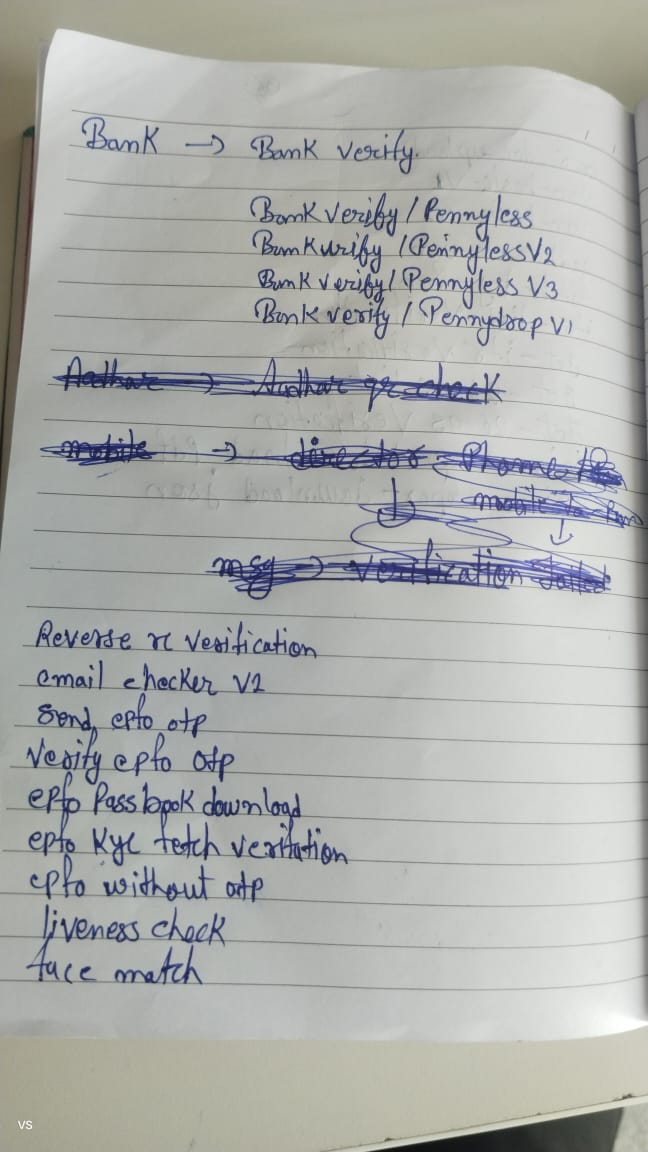 Bank → Bank verify.
Bank verify / Pennyless
Bank verify / Pennyless V2
Bank verify / Pennyless V3
Bank verify / Pennydrop V1
Aadhar → Aadhar qr check
mobile → director Phone
↓ mobile to
↓
msg → verification failed
Reverse rc verification
email checker V2
Send epfo otp
Verify epfo otp
epfo Passbook download
epfo Kyc fetch veritation
epfo without otp
liveness check
face match
VS